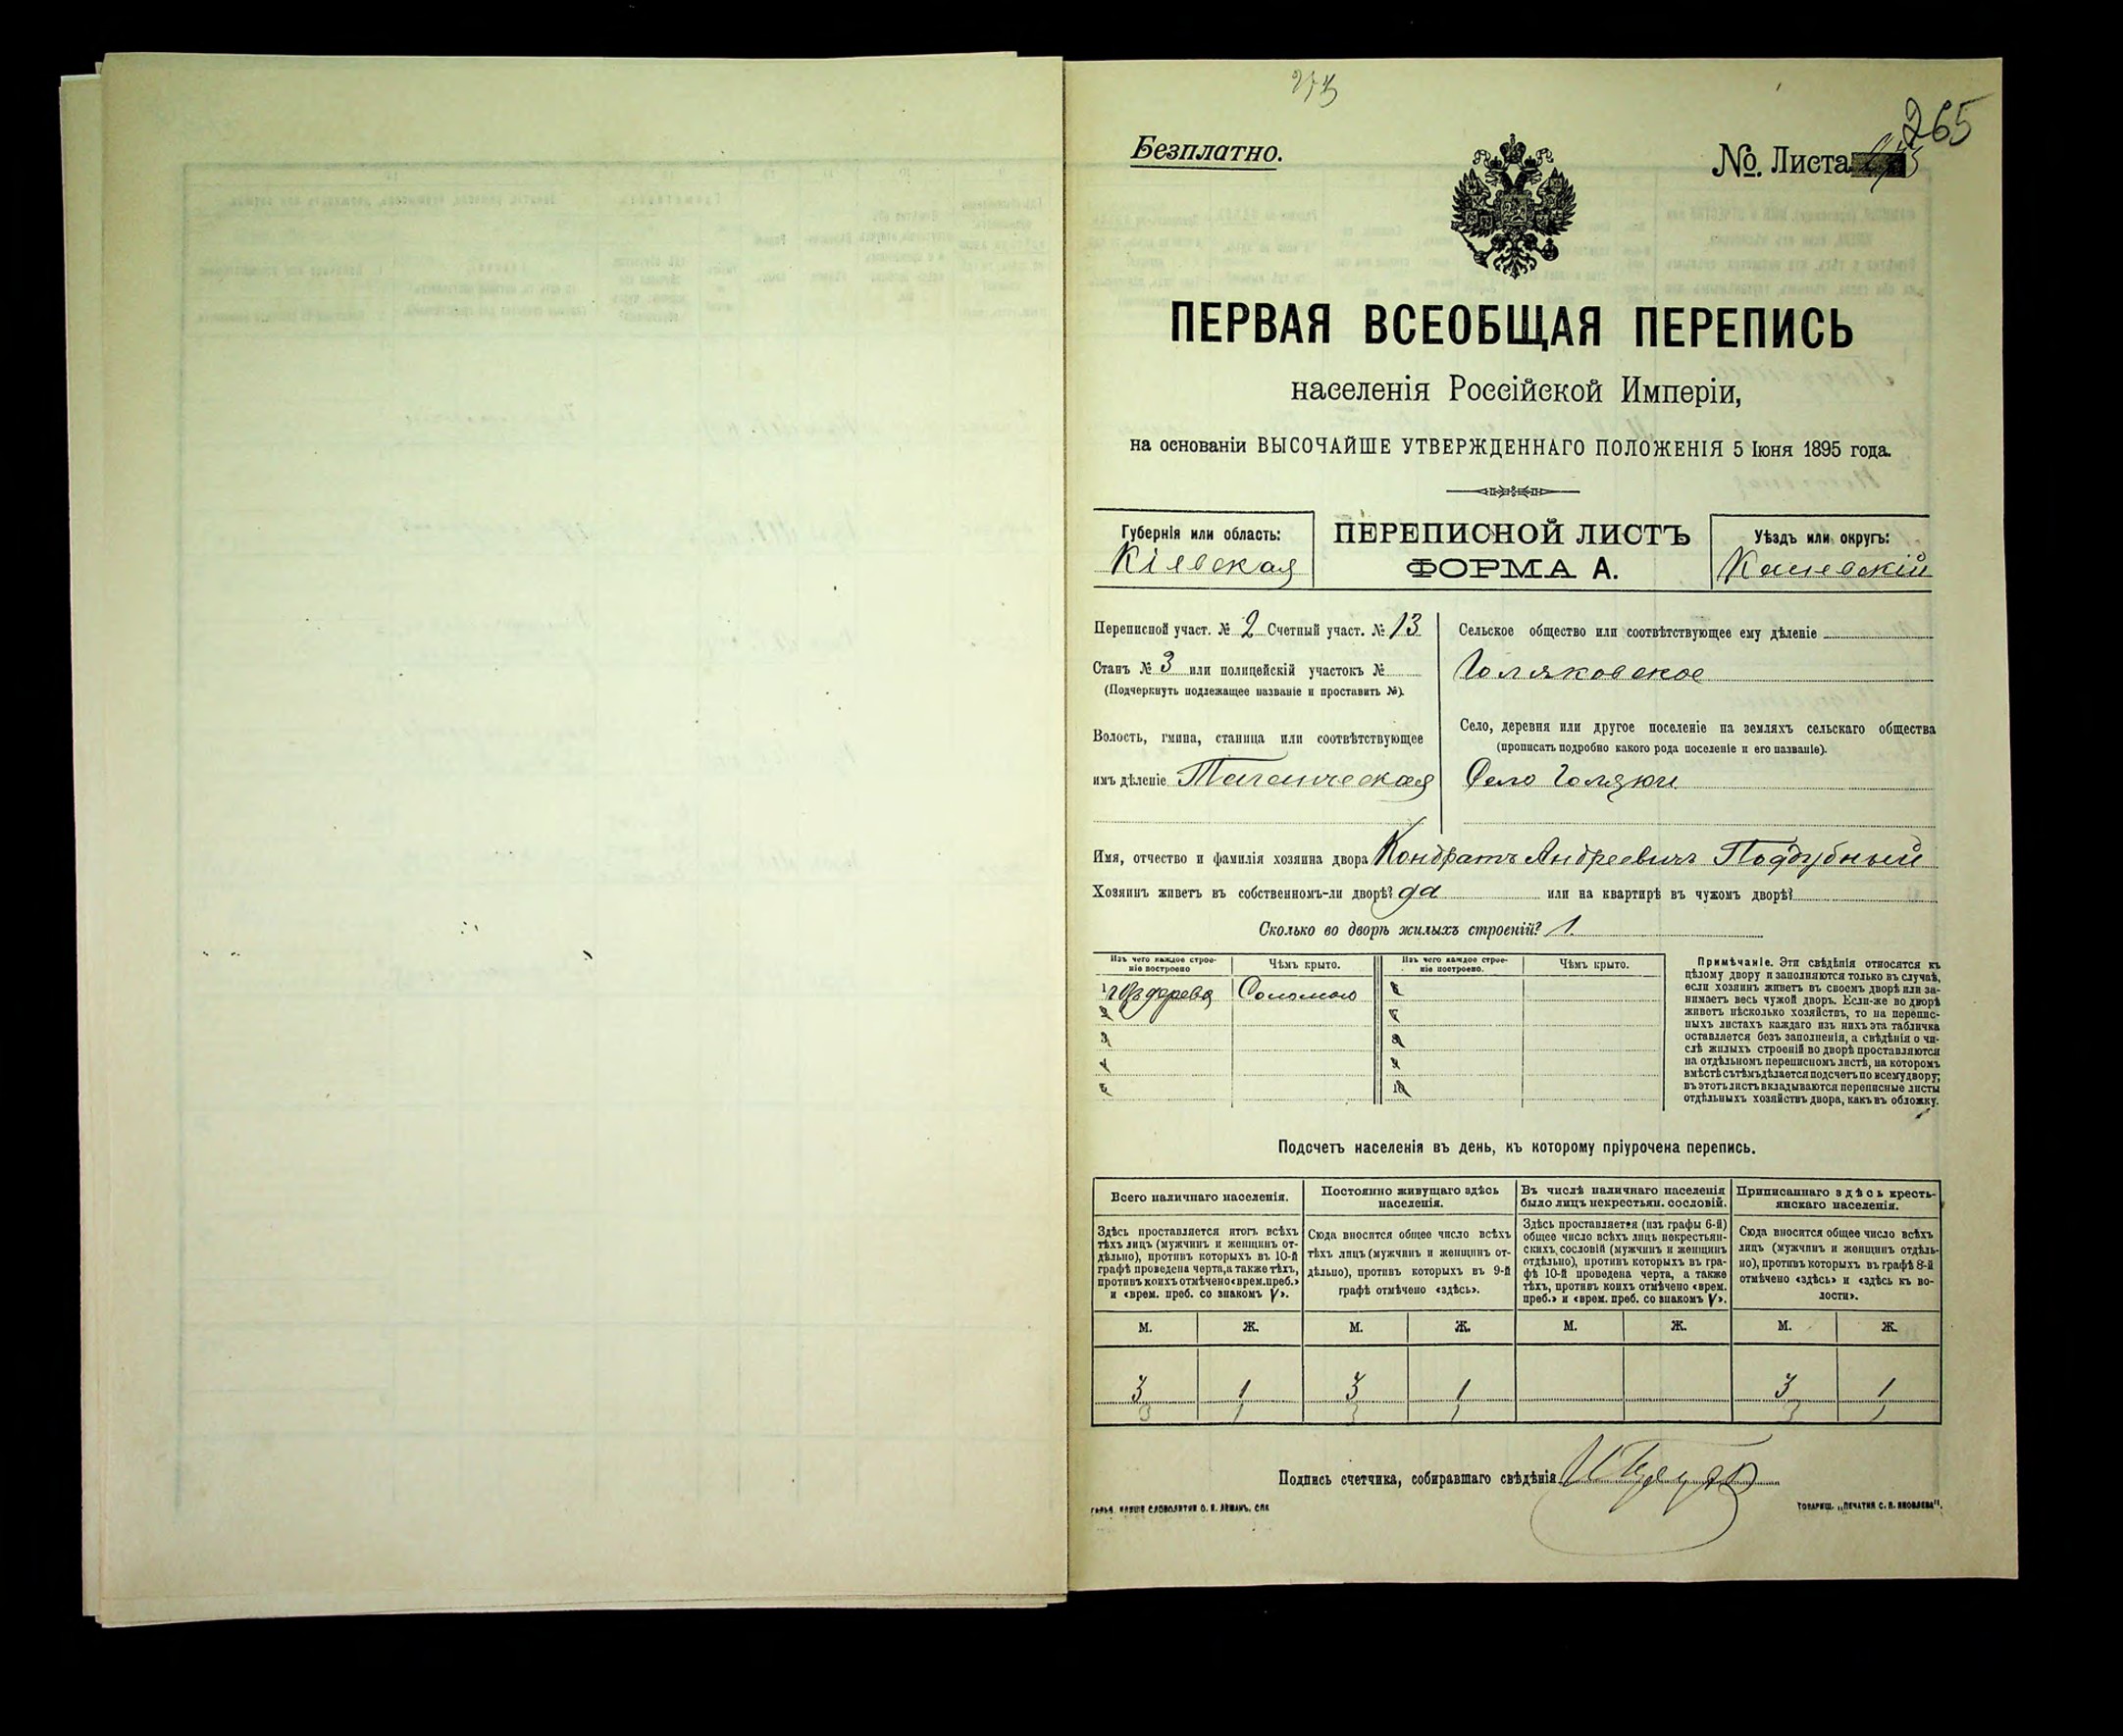 265
Безплатно.
№. Листа
ПЕРВАЯ ВСЕОБЩАЯ ПЕРЕПИСЬ
населенія Россійской Имперіи,
на основаніи ВЫСОЧАЙШЕ УТВЕРЖДЕННАГО ПОЛОЖЕНІЯ 5 Іюня 1895 года.
Губернія или область:
Кіевская
ПЕРЕПИСНОЙ ЛИСТЪ
ФОРМА А.
Уѣздъ или округъ:
Каневскій
Переписной участ. № 2 Счетный участ. № 13
Станъ № 3 или полицейскій участокъ №
(Подчеркнуть подлежащее названіе и проставить №).
Волость, гмина, станица или соотвѣтствующее
имъ дѣленіе Таганческая
Сельское общество или соотвѣтствующее ему дѣленіе
Голяковское
Село, деревня или другое поселеніе на земляхъ сельскаго общества
(прописать подробно какого рода поселеніе и его названіе).
Село Голяки
Имя, отчество и фамилія хозяина двора Кондратъ Андреевичъ Поддубный
Хозяинъ живетъ въ собственномъ-ли дворѣ? да или на квартирѣ въ чужомъ дворѣ?
Сколько во дворѣ жилыхъ строеній? 1.
Изъ чего каждое строе-
ніе построено
Чѣмъ крыто.
Изъ чего каждое строе-
ніе построено.
Чѣмъ крыто.
1 Изъ дерева Соломою
2
3
4
5
6
7
8
9
10
Примѣчаніе. Эти свѣдѣнія относятся къ
цѣлому двору и заполняются только въ случаѣ,
если хозяинъ живетъ въ своемъ дворѣ или за-
нимаетъ весь чужой дворъ. Если-же во дворѣ
живетъ нѣсколько хозяйствъ, то на перепис-
ныхъ листахъ каждаго изъ нихъ эта табличка
оставляется безъ заполненія, а свѣдѣнія о чи-
слѣ жилыхъ строеній во дворѣ проставляются
на отдѣльномъ переписномъ листѣ, на которомъ
вмѣстѣ съ тѣмъ дѣлается подсчетъ по всему двору;
въ этотъ листъ вкладываются переписные листы
отдѣльныхъ хозяйствъ двора, какъ въ обложку.
Подсчетъ населенія въ день, къ которому пріурочена перепись.
Всего наличнаго населенія.
Здѣсь проставляется итогъ всѣхъ
тѣхъ лицъ (мужчинъ и женщинъ от-
дѣльно), противъ которыхъ въ 10-й
графѣ проведена черта, а также тѣхъ,
противъ коихъ отмѣчено «врем. преб.»
и «врем. преб. со знакомъ V».
Постоянно живущаго здѣсь
населенія.
Сюда вносится общее число всѣхъ
тѣхъ лицъ (мужчинъ и женщинъ от-
дѣльно), противъ которыхъ въ 9-й
графѣ отмѣчено «здѣсь».
Въ числѣ наличнаго населенія
было лицъ некрестьян. сословій.
Здѣсь проставляется (изъ графы 6-й)
общее число всѣхъ лицъ некрестьян-
скихъ сословій (мужчинъ и женщинъ
отдѣльно), противъ которыхъ въ гра-
фѣ 10-й проведена черта, а также
тѣхъ, противъ коихъ отмѣчено «врем.
преб.» и «врем. преб. со знакомъ V».
Приписаннаго здѣсь кресть-
янскаго населенія.
Сюда вносится общее число всѣхъ
лицъ (мужчинъ и женщинъ отдѣль-
но), противъ которыхъ въ графѣ 8-й
отмѣчено «здѣсь» и «здѣсь къ во-
лости».
М. Ж. М. Ж. М. Ж. М. Ж.
3 1 3 1 3 1
3 1 3 1 3 1
Подпись счетчика, собиравшаго свѣдѣнія
СЛОВОЛИТНИ О. И. ЛЕМАНЪ, СПБ
ТОВАРИЩ. „ПЕЧАТНЯ С. П. ЯКОВЛЕВА".